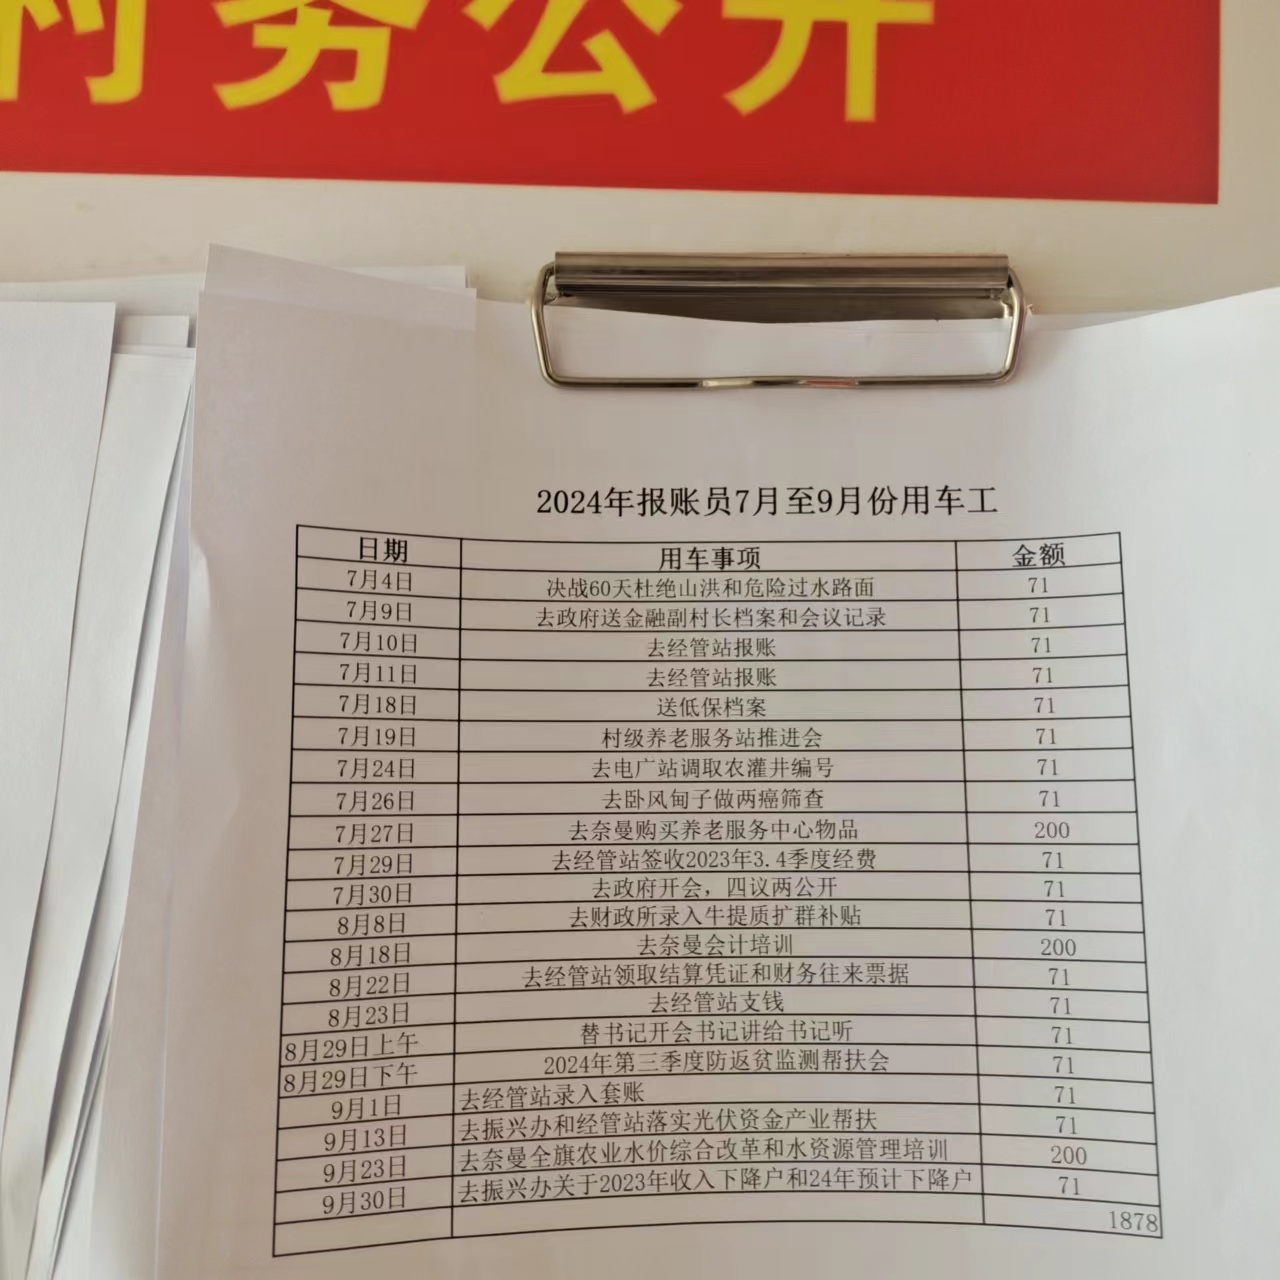 村务公开
2024年报账员7月至9月份用车工
日期 用车事项 金额
7月4日 决战60天杜绝山洪和危险过水路面 71
7月9日 去政府送金融副村长档案和会议记录 71
7月10日 去经管站报账 71
7月11日 去经管站报账 71
7月18日 送低保档案 71
7月19日 村级养老服务站推进会 71
7月24日 去电广站调取农灌井编号 71
7月26日 去卧风甸子做两癌筛查 71
7月27日 去奈曼购买养老服务中心物品 200
7月29日 去经管站签收2023年3.4季度经费 71
7月30日 去政府开会，四议两公开 71
8月8日 去财政所录入牛提质扩群补贴 71
8月18日 去奈曼会计培训 200
8月22日 去经管站领取结算凭证和财务往来票据 71
8月23日 去经管站支钱 71
8月29日上午 替书记开会书记讲给书记听 71
8月29日下午 2024年第三季度防返贫监测帮扶会 71
9月1日 去经管站录入套账 71
9月13日 去振兴办和经管站落实光伏资金产业帮扶 71
9月23日 去奈曼全旗农业水价综合改革和水资源管理培训 200
9月30日 去振兴办关于2023年收入下降户和24年预计下降户 71
1878